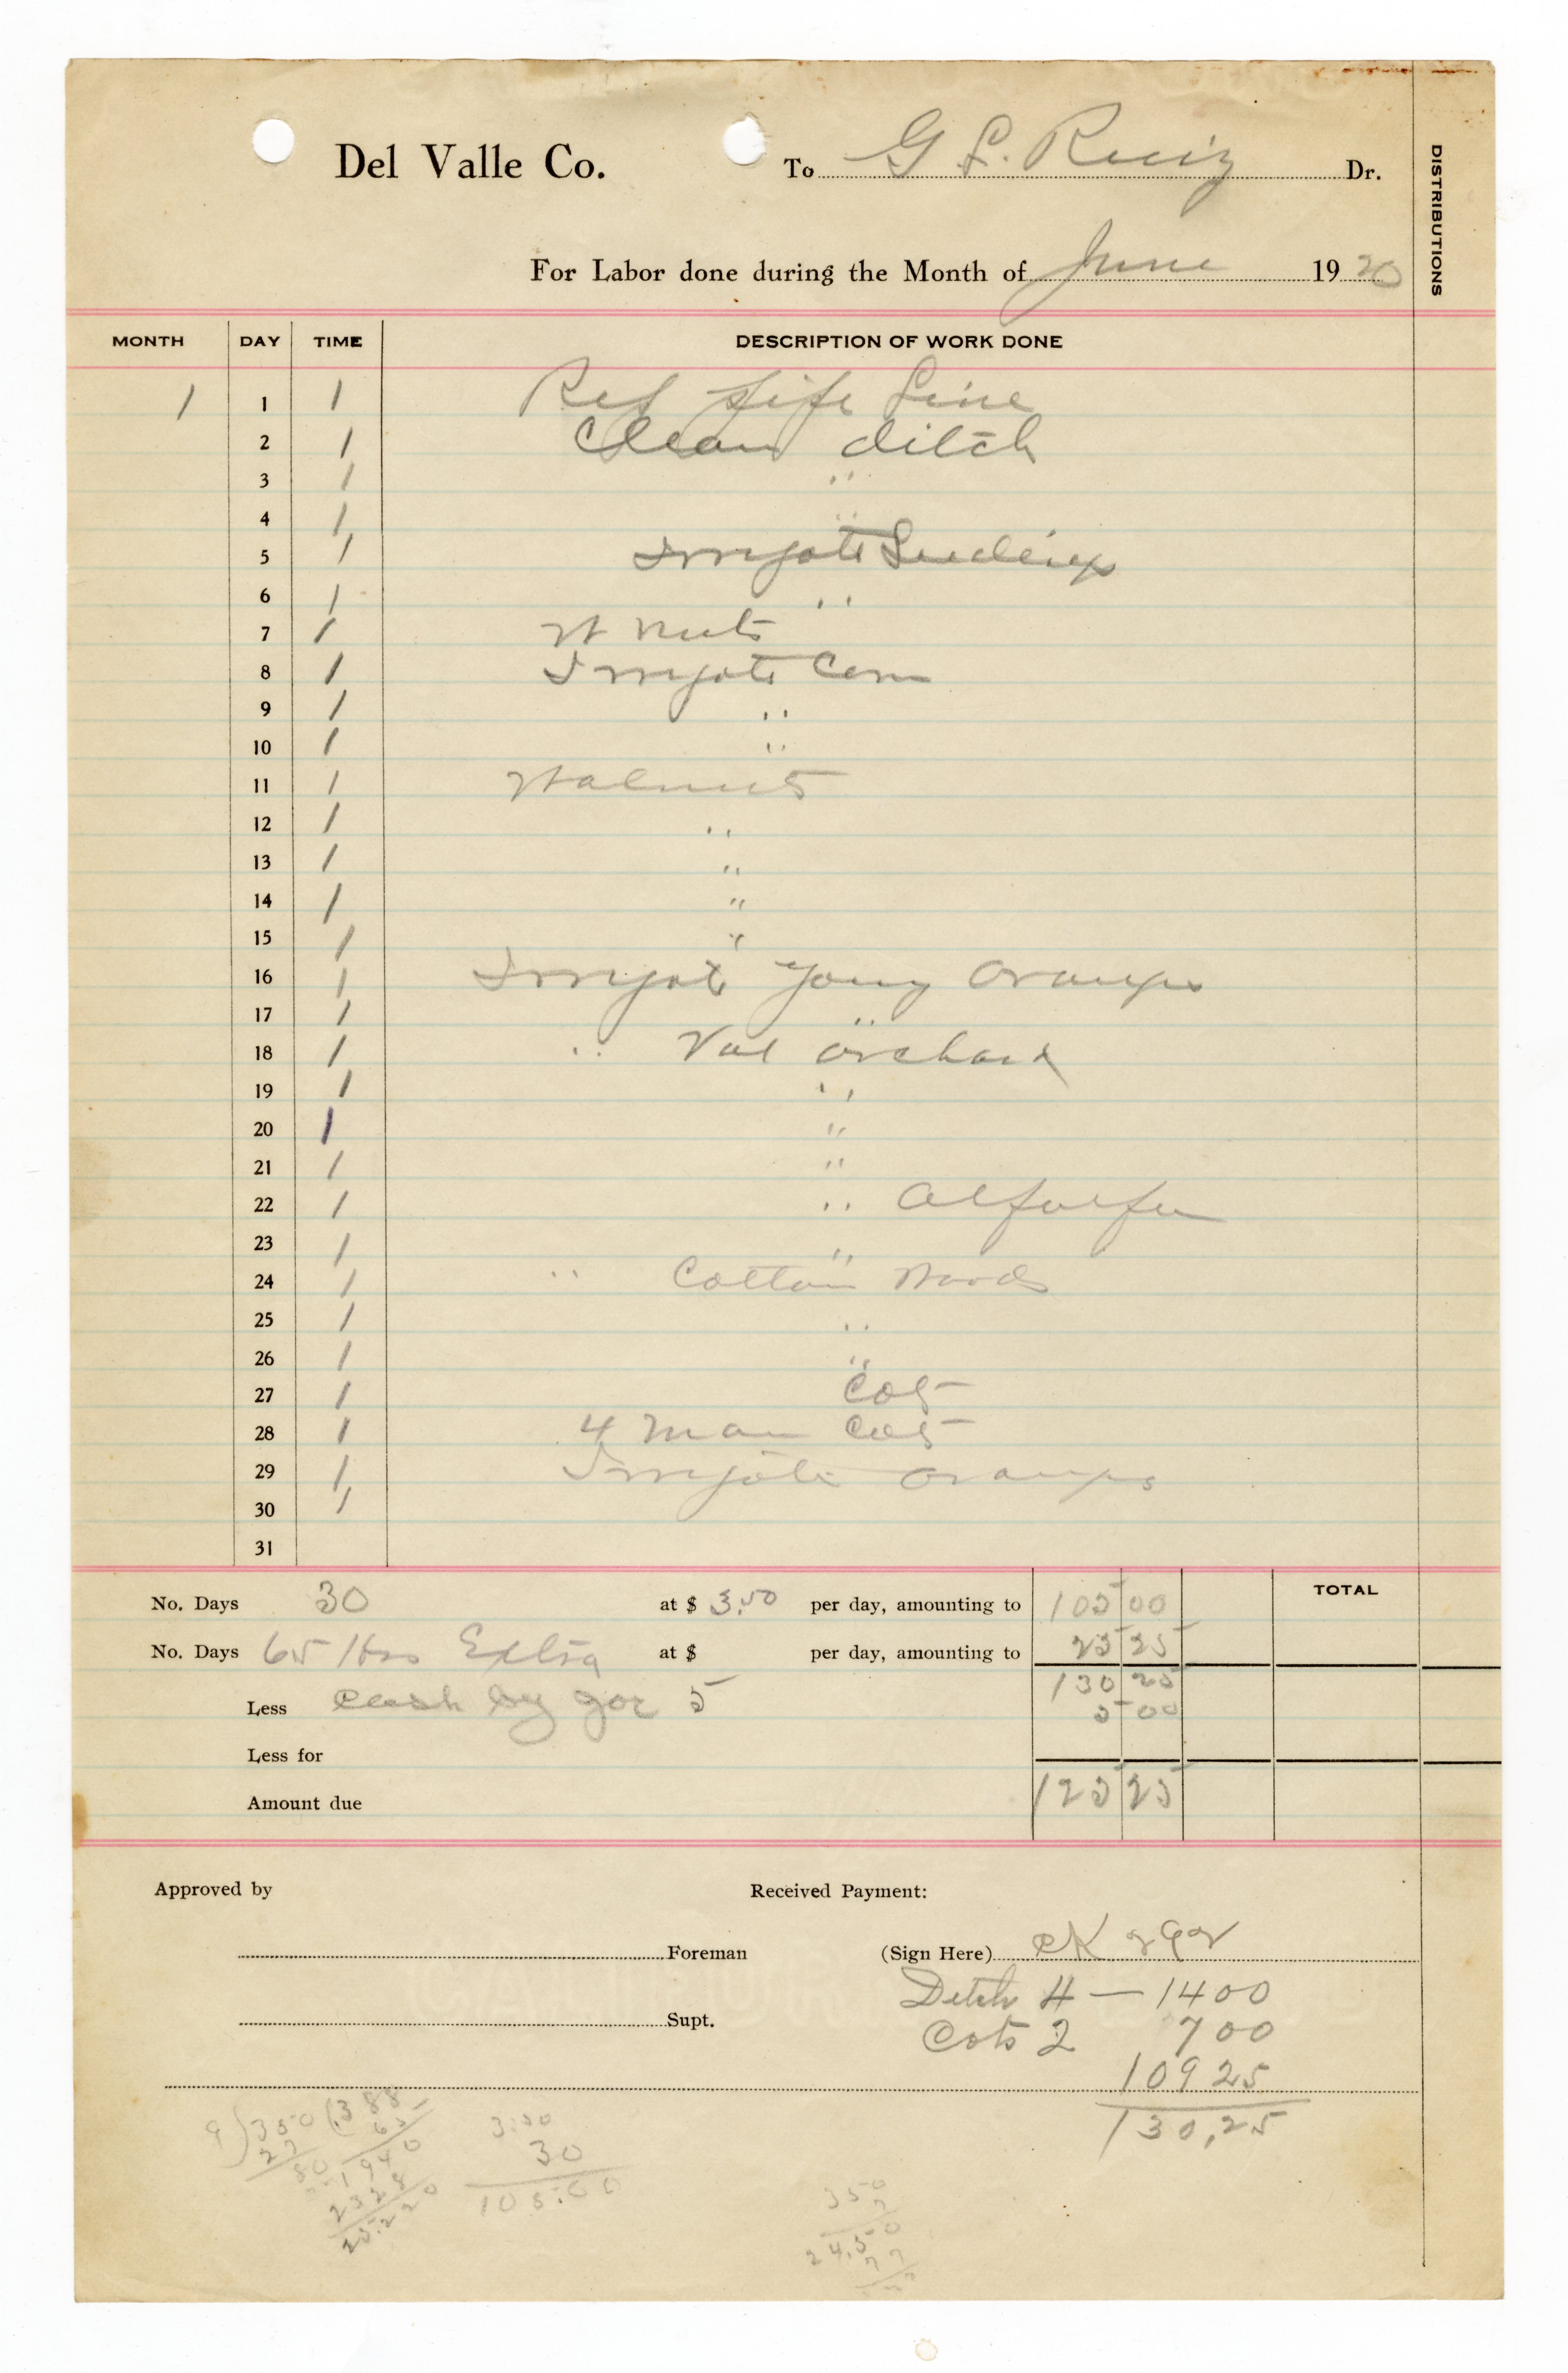 Del Valle Co. To G L. Ruiz Dr.
DISTRIBUTIONS
For Labor done during the Month of June 1920
MONTH DAY TIME DESCRIPTION OF WORK DONE
1 1 1 Rep pipe Line
2 1 Clean ditch
3 1 "
4 1 "
5 1 Irrigate Seedlings
6 1 "
7 1 W nuts
8 1 Irrigate Corn
9 1 "
10 1 "
11 1 Walnuts
12 1 "
13 1 "
14 1 "
15 1 "
16 1 Irrigate Young Oranges
17 1 "
18 1 " Val orchard
19 1 "
20 1 "
21 1 "
22 1 " Alfalfa
23 1 "
24 1 " Cotton Woods
25 1 "
26 1 "
27 1 Cots
28 1 4 Man Cots
29 1 Irrigate oranges
30 1
31
No. Days 30 at $ 3.50 per day, amounting to 105 00 TOTAL
No. Days 65 Hrs Extra at $ per day, amounting to 25 25
130 25
Less cash by 5 5 00
Less for
Amount due 125 25
Approved by Received Payment:
Foreman (Sign Here) cK
Ditch 4 — 1400
Supt.
Cots 2 700
10925
130,25
9)350(.388
27 65
80 1940
2328
25.220
3.50
30
105.00
350
7
24.50
77